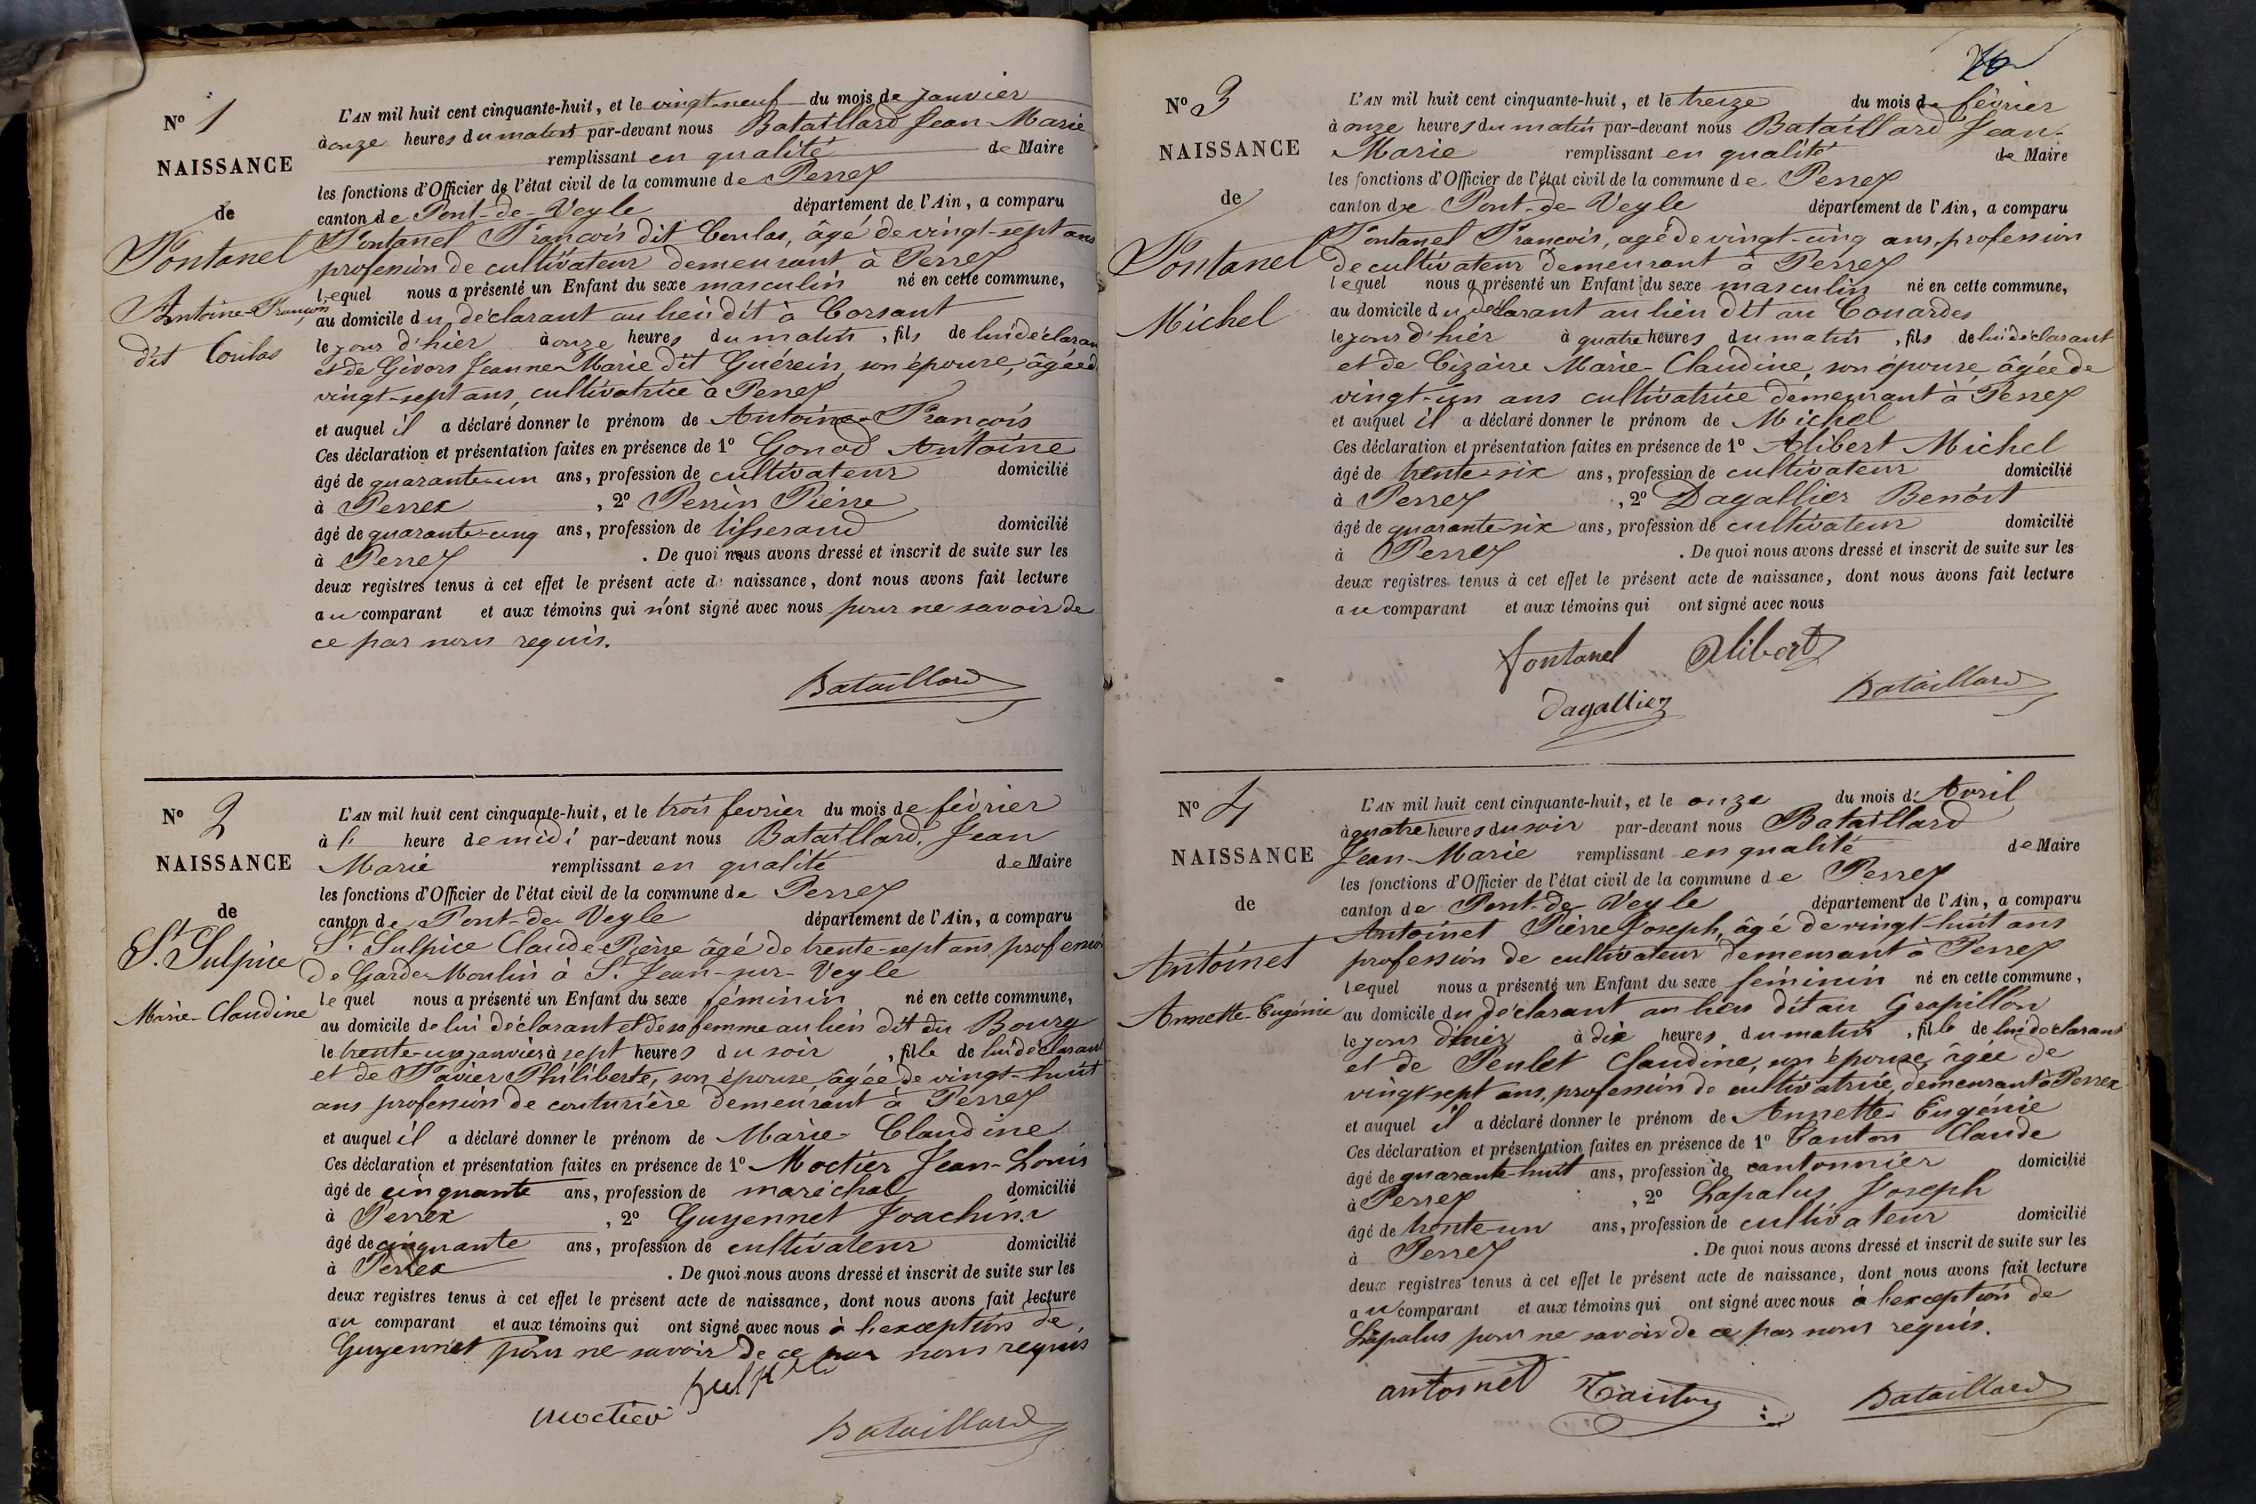 N° 1
NAISSANCE
de
Fontanel
Antoine-François
dit Coulas
L'AN mil huit cent cinquante-huit, et le vingt-neuf du mois de Janvier
à onze heures du matin par-devant nous Bataillard Jean-Marie
remplissant en qualité de Maire
les fonctions d'Officier de l'état civil de la commune de Perrex
canton de Pont-de-Veyle département de l'Ain, a comparu
Fontanel François dit Coulas, âgé de vingt-sept ans
profession de cultivateur demeurant à Perrex
lequel nous a présenté un Enfant du sexe masculin né en cette commune,
au domicile du déclarant au lieu dit à Corsant
le jour d'hier à onze heures du matin, fils de lui déclarant
et de Givors Jeanne-Marie dit Guérin, son épouse, âgée d
vingt-sept ans, cultivatrice à Perrex
et auquel il a déclaré donner le prénom de Antoine-François
Ces déclaration et présentation faites en présence de 1° Gonod Antoine
âgé de quarante-un ans, profession de cultivateur domicilié
à Perrex, 2° Perrin Pierre
âgé de quarante-cinq ans, profession de tisserand domicilié
à Perrex. De quoi nous avons dressé et inscrit de suite sur les
deux registres tenus à cet effet le présent acte de naissance, dont nous avons fait lecture
au comparant et aux témoins qui n'ont signé avec nous pour ne savoir de
ce par nous requis.
Bataillard
N° 2
NAISSANCE
de
St. Sulpice
Marie-Claudine
L'AN mil huit cent cinquante-huit, et le trois fevrier du mois de février
à l' heure de midi par-devant nous Bataillard, Jean
Marie remplissant en qualité de Maire
les fonctions d'Officier de l'état civil de la commune de Perrex
canton de Pont-de-Veyle département de l'Ain, a comparu
St. Sulpice Claude-Pierre âgé de trente-sept ans profession
de Garde-Moulin à St. Jean-sur-Veyle
lequel nous a présenté un Enfant du sexe féminin né en cette commune,
au domicile de lui déclarant et de sa femme au lieu dit du Bourg
le trente-un janvier à sept heures du soir, fille de lui déclarant
et de Favier Philiberte, son épouse âgée de vingt-huit
ans profession de couturière demeurant à Perrex
et auquel il a déclaré donner le prénom de Marie-Claudine
Ces déclaration et présentation faites en présence de 1° Moctier Jean-Louis
âgé de cinquante ans, profession de maréchal domicilié
à Perrex, 2° Guyennet Joachim
âgé de cinquante ans, profession de cultivateur domicilié
à Perrex. De quoi nous avons dressé et inscrit de suite sur les
deux registres tenus à cet effet le présent acte de naissance, dont nous avons fait lecture
au comparant et aux témoins qui ont signé avec nous à l'exception de
Guyennet pour ne savoir de ce par nous requis
Moctier
Bataillard
N° 3
NAISSANCE
de
Fontanel
Michel
L'AN mil huit cent cinquante-huit, et le treize du mois de février
à onze heures du matin par-devant nous Bataillard Jean-
Marie remplissant en qualité de Maire
les fonctions d'Officier de l'état civil de la commune de Perrex
canton de Pont-de-Veyle département de l'Ain, a comparu
Fontanel François, agé de vingt-cinq ans, profession
de cultivateur demeurant à Perrex
lequel nous a présenté un Enfant du sexe masculin né en cette commune,
au domicile du déclarant au lieu dit au Couardes
le jour d'hier à quatre heures du matin, fils de lui déclarant
et de Cizaire Marie-Claudine, son épouse âgée de
vingt-un ans cultivatrice demeurant à Perrex
et auquel il a déclaré donner le prénom de Michel
Ces déclaration et présentation faites en présence de 1° Alibert Michel
âgé de trente-six ans, profession de cultivateur domicilié
à Perrex, 2° Dagallier Benoit
âgé de quarante-six ans, profession de cultivateur domicilié
à Perrex. De quoi nous avons dressé et inscrit de suite sur les
deux registres tenus à cet effet le présent acte de naissance, dont nous avons fait lecture
au comparant et aux témoins qui ont signé avec nous
fontanel Alibert
Dagallier Bataillard
N° 4
NAISSANCE
de
Antoinet
Annette-Eugénie
L'AN mil huit cent cinquante-huit, et le onze du mois d'Avril
à quatre heures du soir par-devant nous Bataillard
Jean-Marie remplissant en qualité de Maire
les fonctions d'Officier de l'état civil de la commune de Perrex
canton de Pont-de-Veyle département de l'Ain, a comparu
Antoinet Pierre Joseph, âgé de vingt-huit ans
profession de cultivateur demeurant à Perrex
lequel nous a présenté un Enfant du sexe féminin né en cette commune,
au domicile du déclarant au lieu dit au Grapillon
le jour d'hier à dix heures du matin, fille de lui déclarant
et de Peulet Claudine, son épouse âgée de
vingt-sept ans, profession de cultivatrice, demeurant à Perrex
et auquel il a déclaré donner le prénom de Annette-Eugénie
Ces déclaration et présentation faites en présence de 1° Tanton Claude
âgé de quarante-huit ans, profession de cantonnier domicilié
à Perrex, 2° Lapalus Joseph
âgé de trente-un ans, profession de cultivateur domicilié
à Perrex. De quoi nous avons dressé et inscrit de suite sur les
deux registres tenus à cet effet le présent acte de naissance, dont nous avons fait lecture
au comparant et aux témoins qui ont signé avec nous à l'exception de
Lapalus pour ne savoir de ce par nous requis.
antoinet Tanton Bataillard